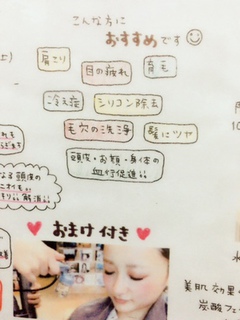 こんな方に
おすすめです
肩こり
目の疲れ
育毛
冷え症
シリコン除去
毛穴の洗浄
髪にツヤ
頭皮・お顔・身体の
血行促進!!
解消!!
おまけ付き
美肌効果
炭酸フェ